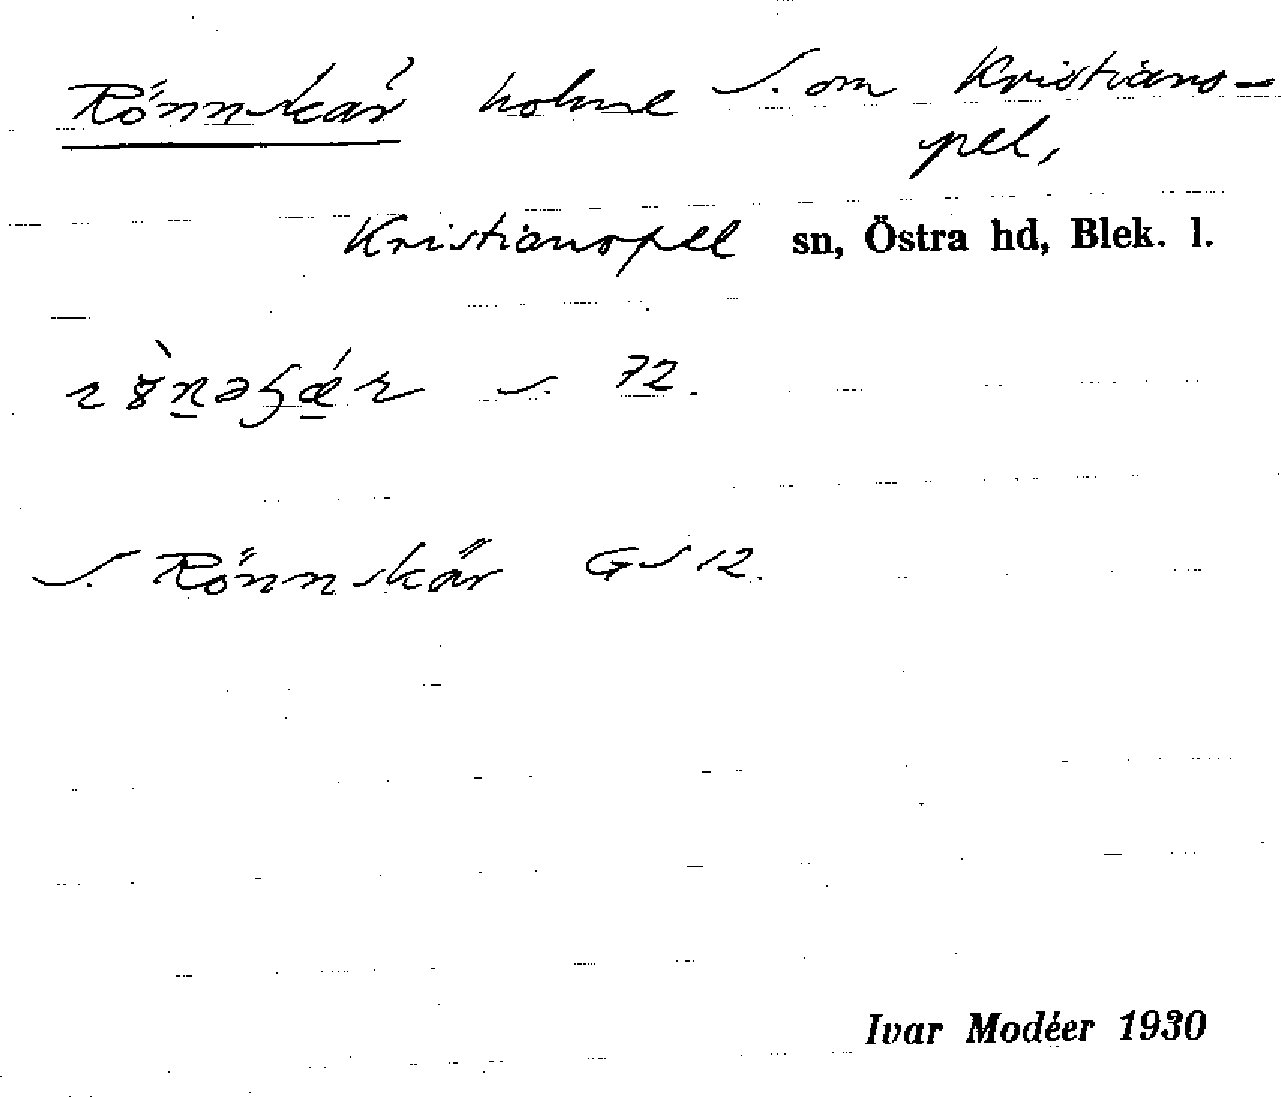 Rönnskär holme S. om Kristians-
pel,
Kristianopel sn, Östra hd, Blek. l.
s. 72.
S. Rönnskär GS 12.
Ivar Modéer 1930